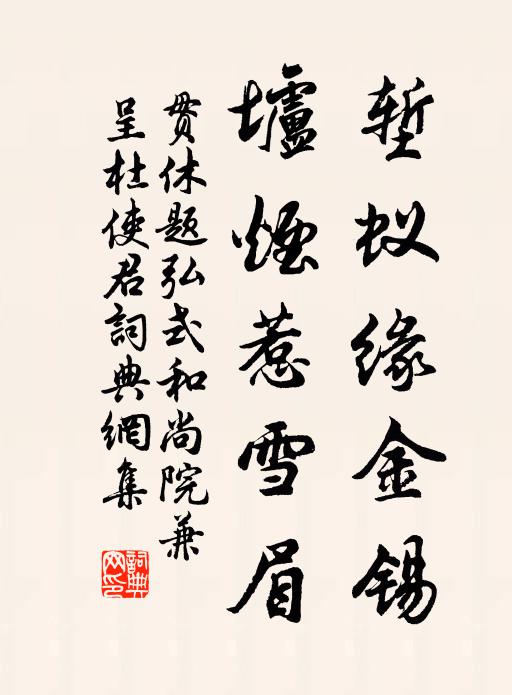 堑蚁缘金锡
壚煙惹雪眉
贯休题弘式和尚院兼
呈杜使君詞典網集
詞典网印